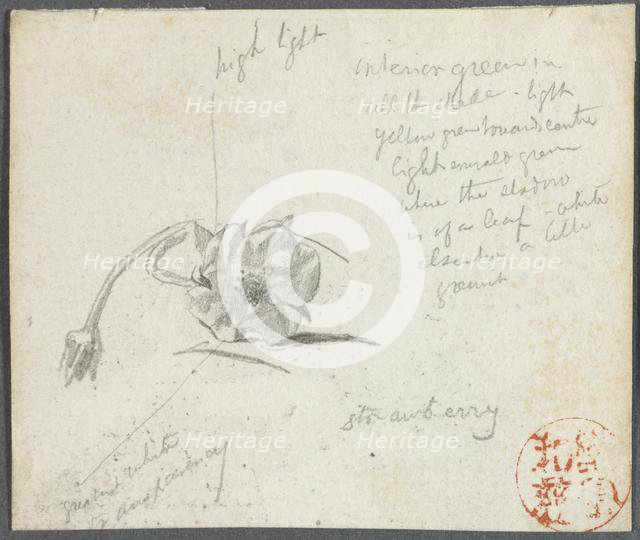 high light
interior green in
all the shade - light
yellow green towards centre
light emerald green
where the shadow
is of a leaf - white
elsewhere a little
greenish
strawberry
greatest white
& transparency
Heritage
Heritage
Heritage
Heritage
Heritage
Heritage
Heritage
Heritage
Heritage
©